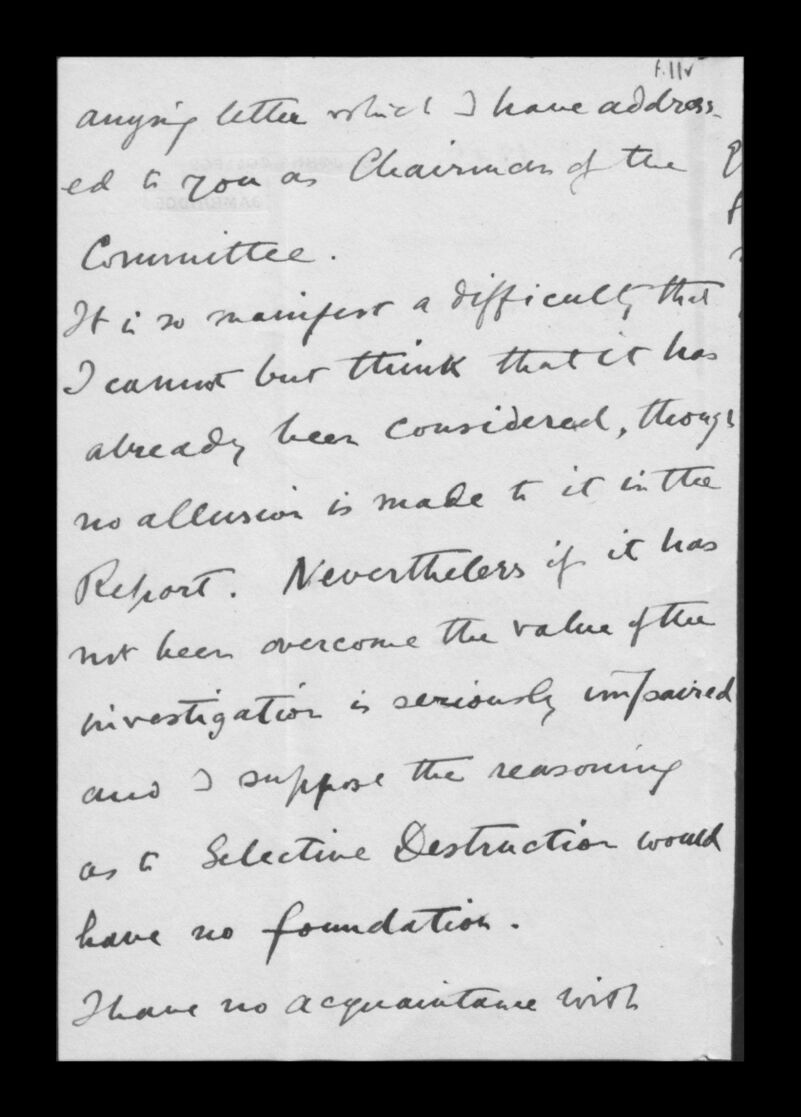 f.11v
anying letter which I have address-
ed to you as Chairman of the
Committee.
It is so manifest a difficulty that
I cannot but think that it has
already been considered, though
no allusion is made to it in the
Report. Nevertheless if it has
not been overcome the value of the
investigation is seriously impaired
and I suppose the reasoning
as to Selective Destruction would
have no foundation.
I have no acquaintance with